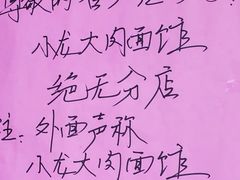 尊敬的各
小龙大肉面馆
绝无分店
注：外面声称
小龙大肉面馆